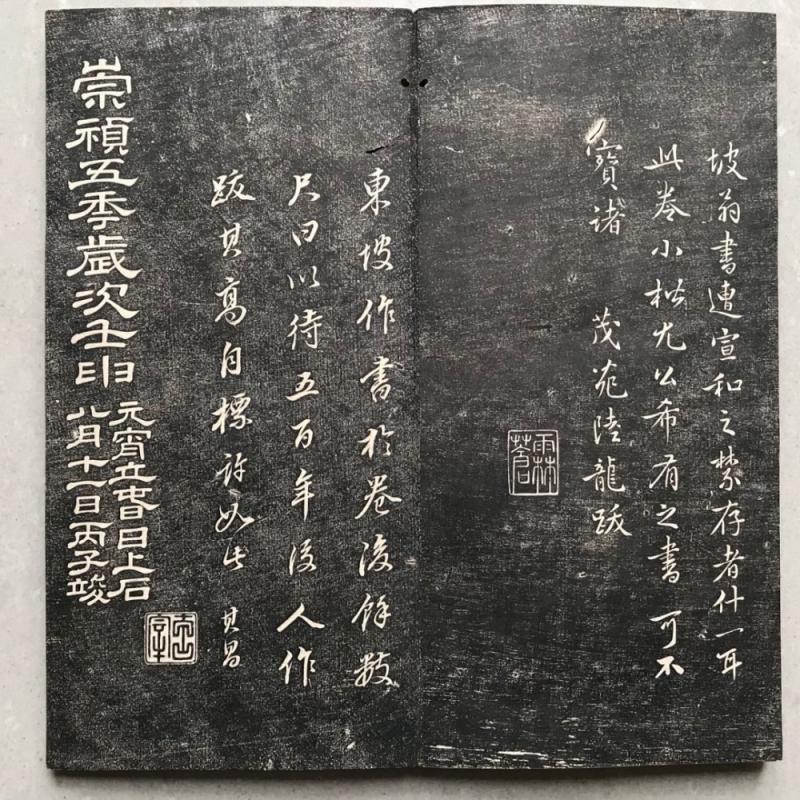 坡翁書遭宣和之禁存者什一耳
此卷小楷尤公希有之書可不
寶諸 茂苑陸龍跋
東坡作書於卷後餘數
尺曰以待五百年後人作
跋其高自標許如此 其昌
崇禎五年歲次壬申
元宵立春日上石
八月十一日丙子竣